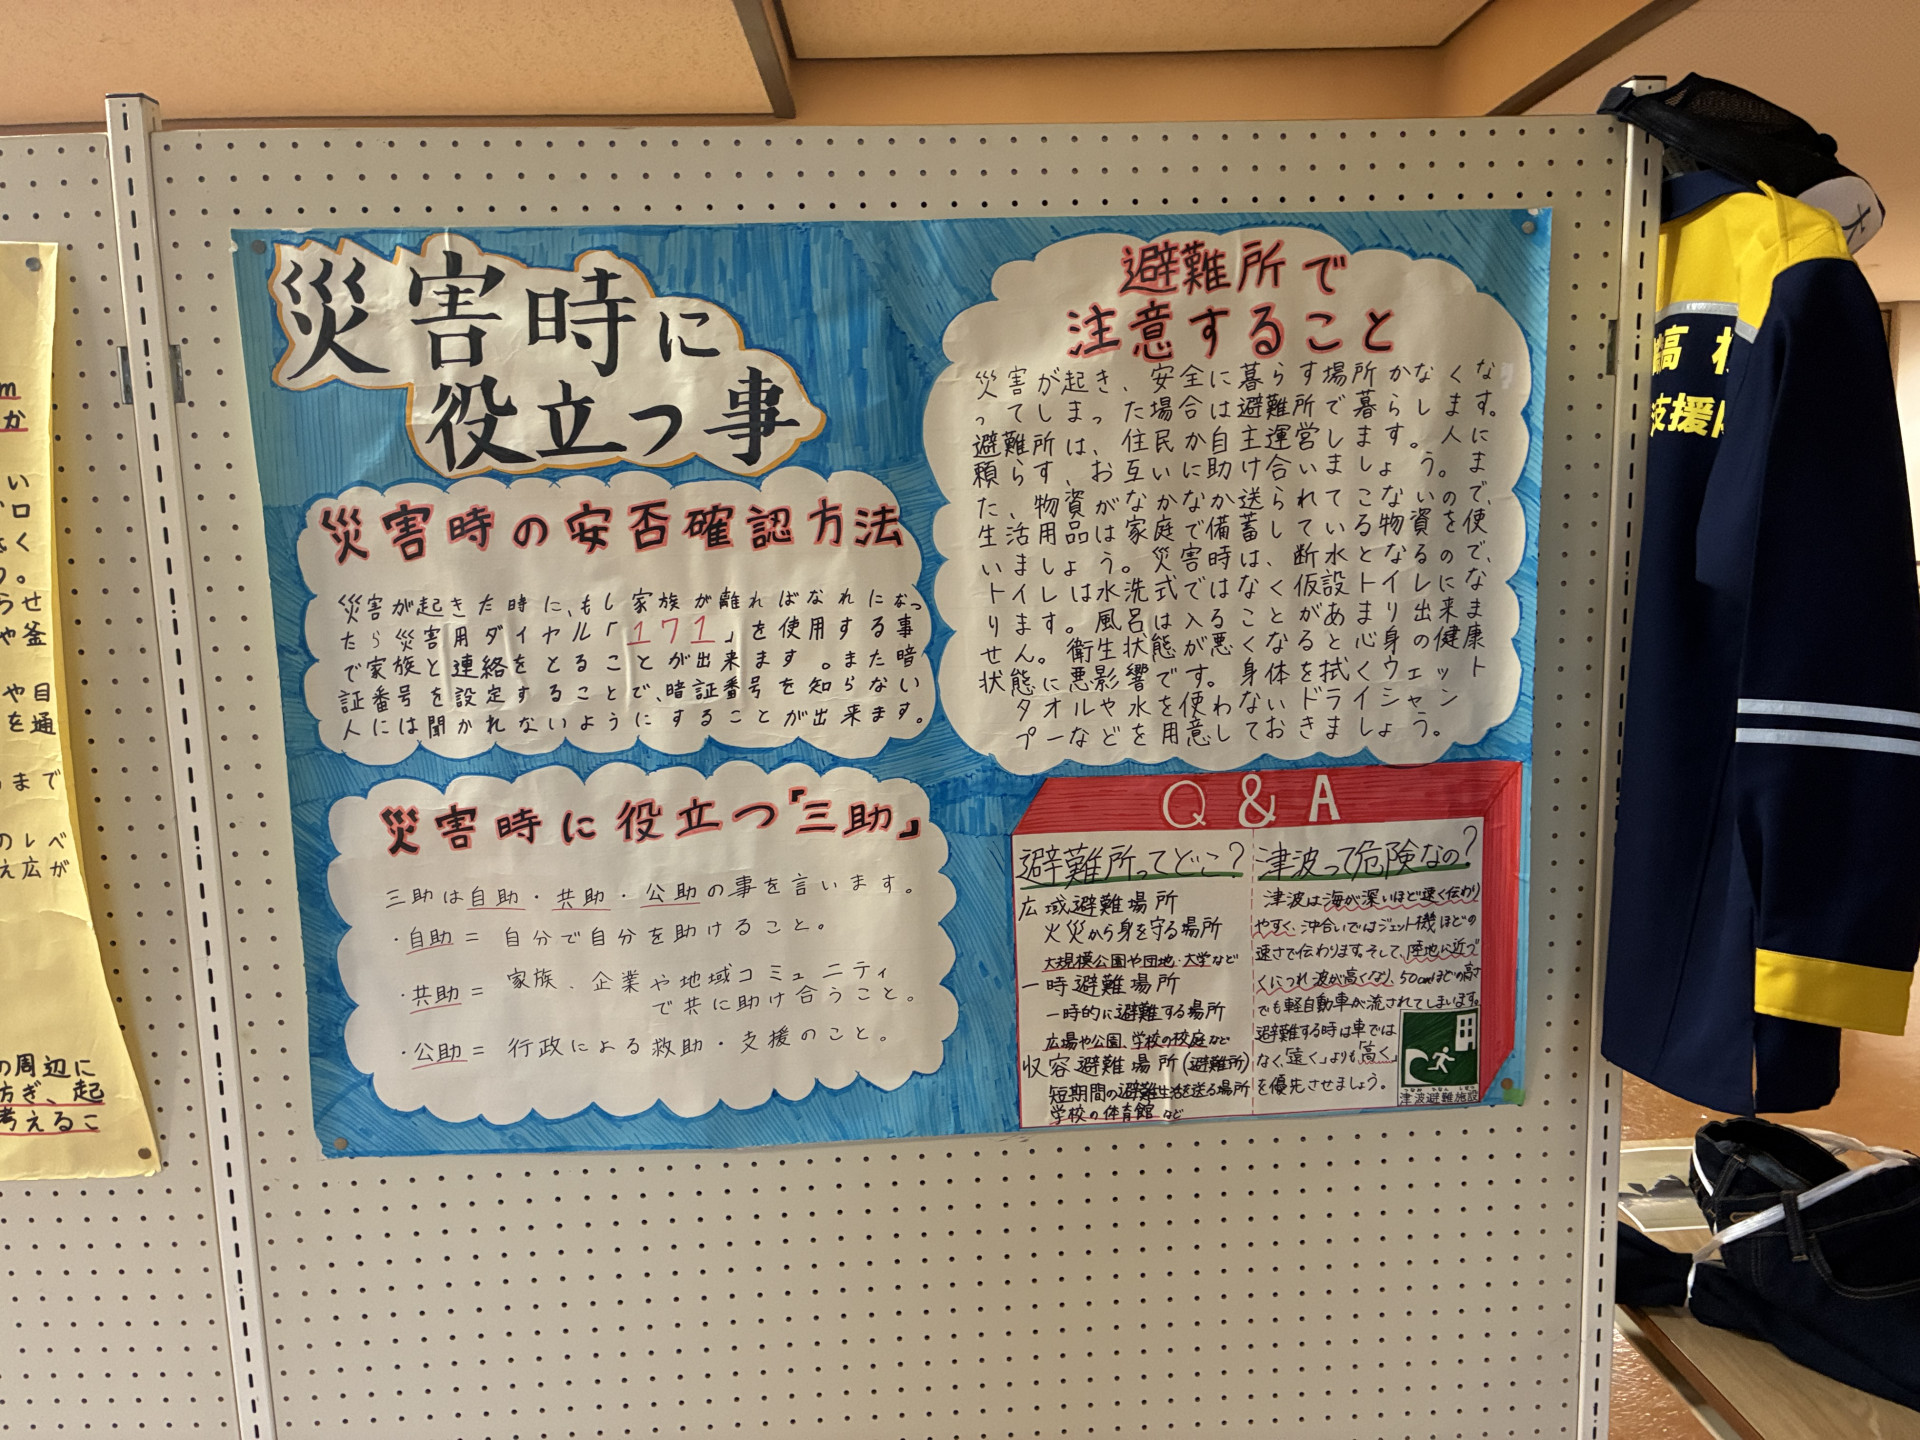 災害時に
役立つ事
災害時の安否確認方法
災害が起きた時に、もし家族が離ればなれになっ
たら災害用ダイヤル「171」を使用する事
で家族と連絡をとることが出来ます。また暗
証番号を設定することで、暗証番号を知らない
人には聞かれないようにすることが出来ます。
災害時に役立つ『三助』
三助は自助・共助・公助の事を言います。
・自助＝自分で自分を助けること。
・共助＝家族、企業や地域コミュニティ
で共に助け合うこと。
・公助＝行政による救助・支援のこと。
避難所で
注意すること
災害が起き、安全に暮らす場所がなくな
ってしまった場合は避難所で暮らします。
避難所は、住民が自主運営します。人に
頼らず、お互いに助け合いましょう。ま
た、物資がなかなか送られてこないので、
生活用品は家庭で備蓄している物資を使
いましょう。災害時は、断水となるので、
トイレは水洗式ではなく仮設トイレにな
ります。風呂は入ることがあまり出来ま
せん。衛生状態が悪くなると心身の健康
状態に悪影響です。身体を拭くウェット
タオルや水を使わないドライシャン
プーなどを用意しておきましょう。
Q&A
避難所ってどこ?
広域避難場所
火災から身を守る場所
大規模公園や団地・大学など
一時避難場所
一時的に避難する場所
広場や公園、学校の校庭など
収容避難場所(避難所)
短期間の避難生活を送る場所
学校の体育館など
津波って危険なの?
津波は海が深いほど速く伝わり
やすく、沖合いではジェット機ほどの
速さで伝わります。そして、陸地に近づ
くにつれ波が高くなり、50cmほどの高さ
でも軽自動車が流されてしまいます。
避難する時は車では
なく、「遠く」よりも「高く」
を優先させましょう。
津波避難施設
m
か
い
ロ
く
う。
らせ
や釜
や目
を通
まで
のレベ
え広が
の周辺に
防ぎ、起
考えるこ
高 校
支援隊